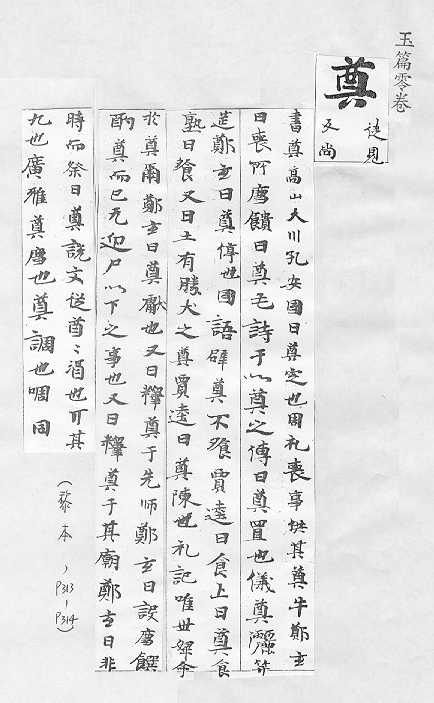 玉篇零卷
奠
徒見
反尚
書奠高山大川孔安國曰奠定也周礼喪事共其奠牛鄭玄
曰喪所薦饋曰奠毛詩于以奠之傳曰奠置也儀奠
鄭玄曰奠停也國語辟奠不飡賈逵曰食上曰奠食
熟曰飡又曰士有勝犬之奠賈逵曰奠陳也礼記唯世婦命
於奠爾鄭玄曰奠獻也又曰釋奠于先師鄭玄曰設薦饌
酌奠而已无迎尸以下之事也又曰釋奠于其廟鄭玄曰非
時而祭曰奠說文從酋〻酒也丌其
丌也廣雅奠薦也奠調也啁同
(黎本,P313-P314)